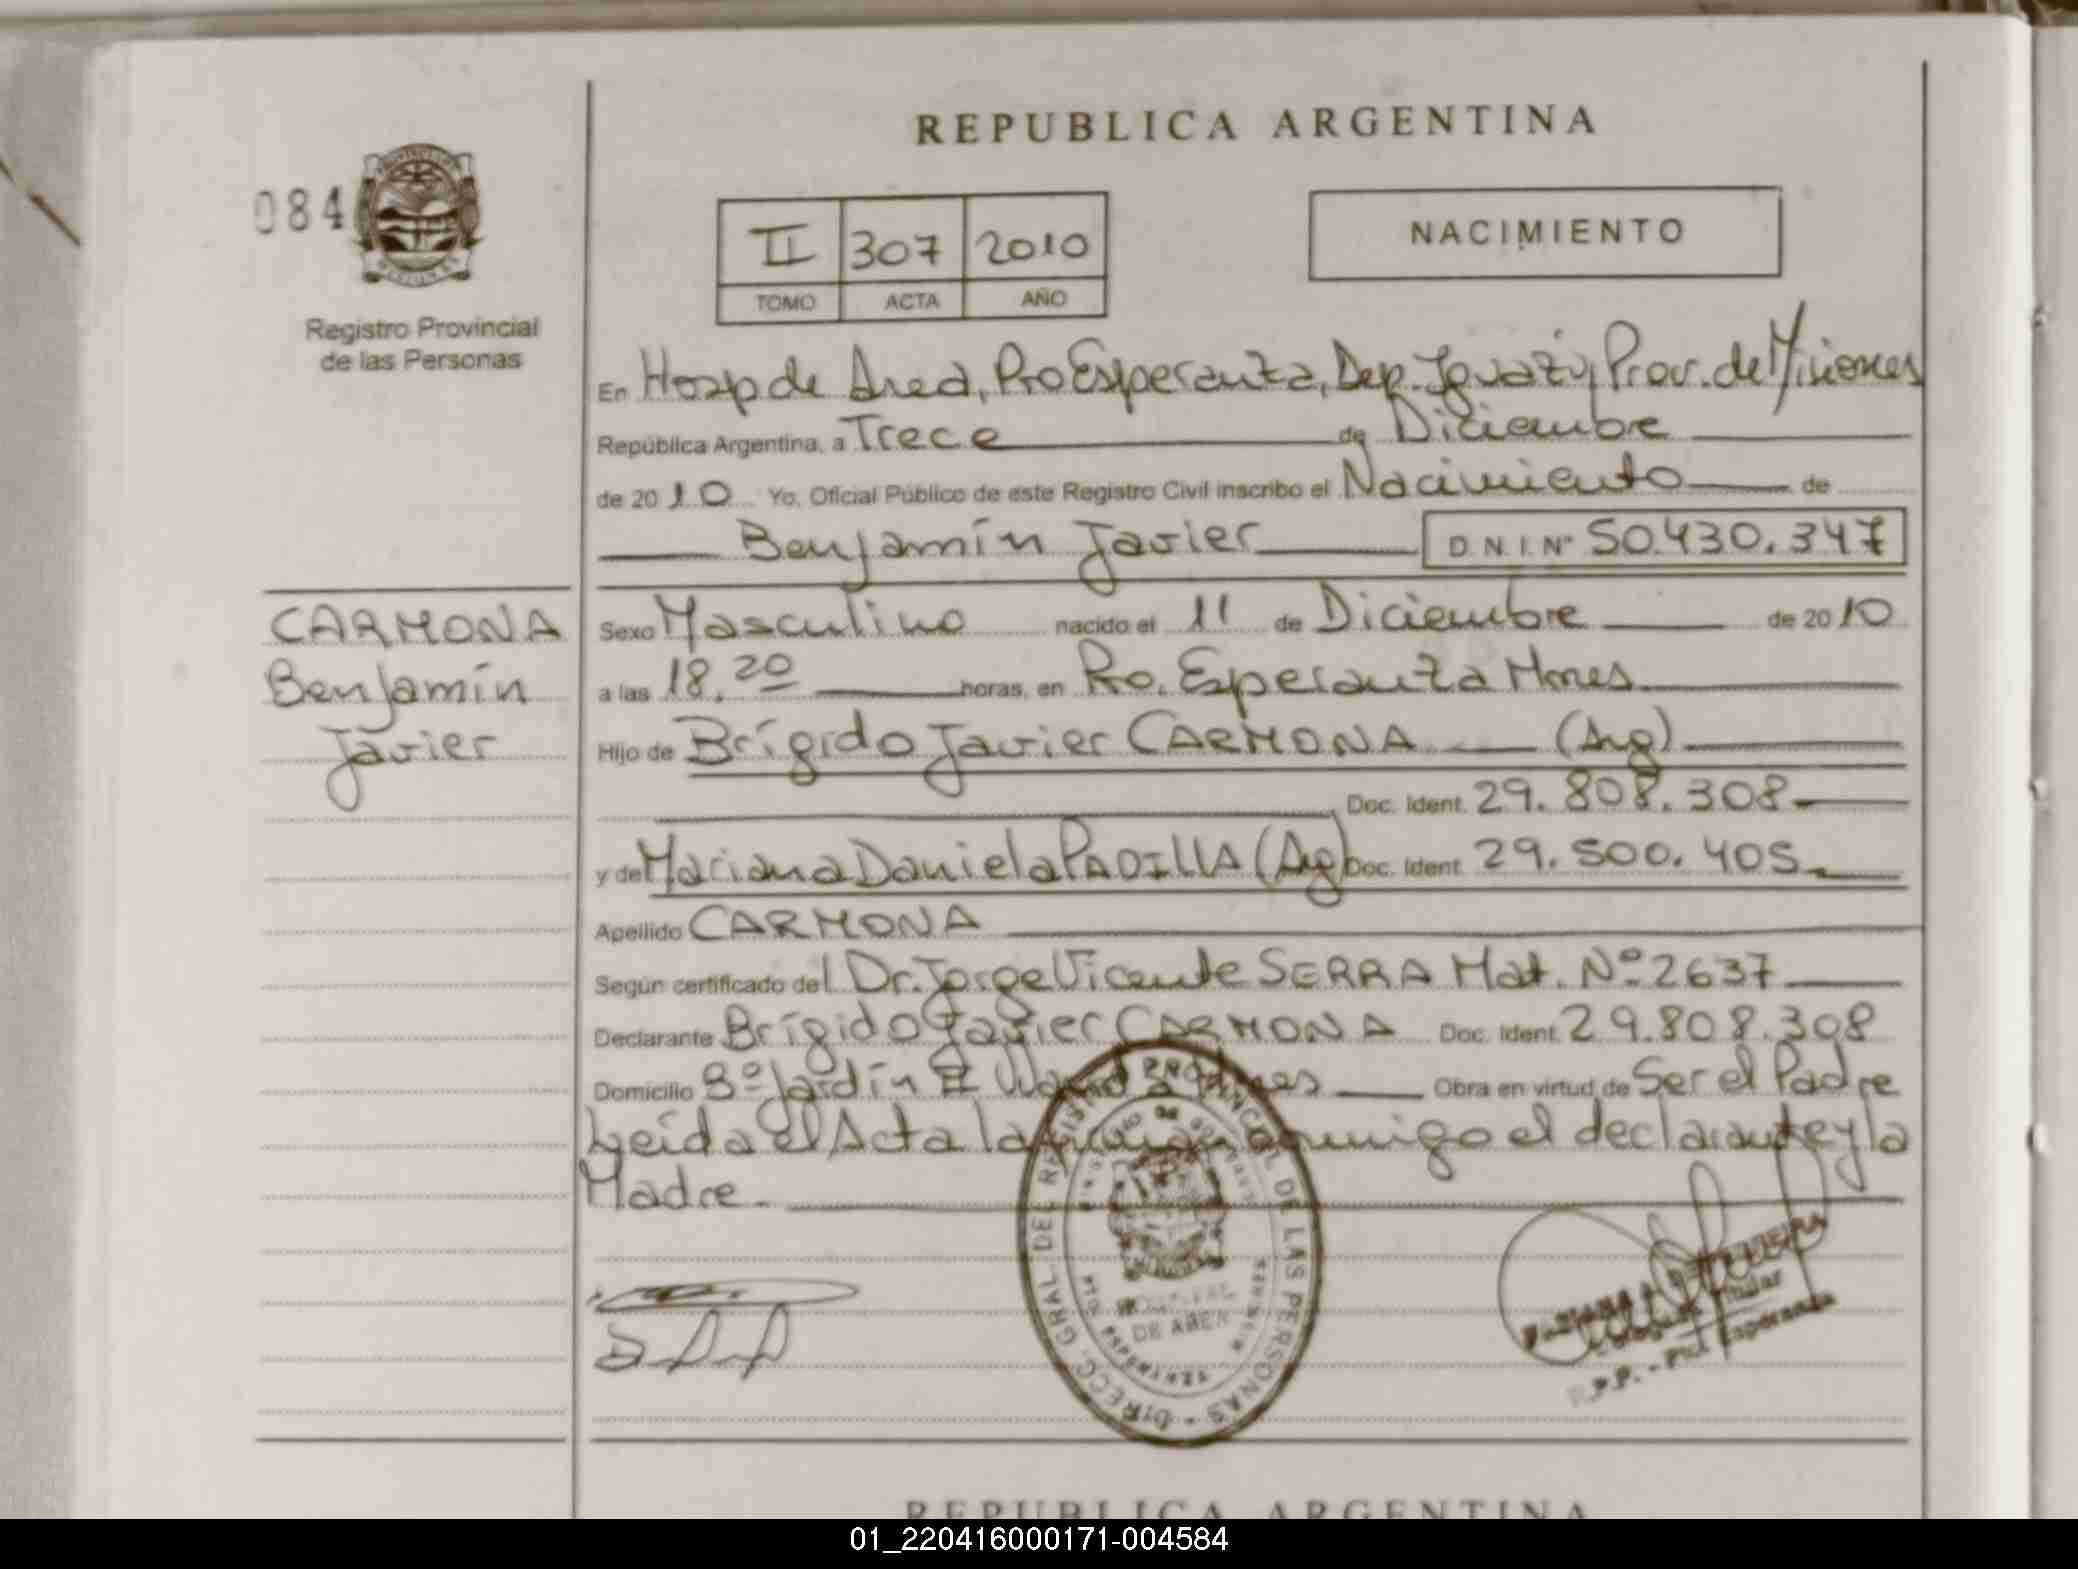 REPUBLICA ARGENTINA
084
II 307 2010
TOMO ACTA AÑO
NACIMIENTO
Registro Provincial
de las Personas
En Hosp de Area, Pto Esperanza, Dep. Iguazú, Prov. de Misiones
República Argentina, a Trece de Diciembre
de 2010 Yo, Oficial Público de este Registro Civil inscribo el Nacimiento de
Benjamín Javier D.N.I.Nº 50.430.347
CARMONA
Benjamín
Javier
Sexo Masculino nacido el 11 de Diciembre de 2010
a las 18.20 horas, en Pto. Esperanza Mnes
Hijo de Brígido Javier CARMONA (Arg)
Doc. Ident. 29.808.308
y de Mariana Daniela PADILLA (Arg) Doc. Ident. 29.500.405
Apellido CARMONA
Según certificado del Dr. Jorge Vicente SERRA Mat. Nº 2637
Declarante Brígido Javier CARMONA Doc. Ident. 29.808.308
Domicilio Bº Jardín Wanda Mnes Obra en virtud de Ser el Padre
Leída el Acta la firman conmigo el declarante y la
Madre.
DIRECC. GRAL. DEL REGISTRO PROVINCIAL DE LAS PERSONAS
HOSPITAL
DE AREA
Titular
R.P.P. - Pto Esperanza
REPUBLICA ARGENTINA
01_220416000171-004584